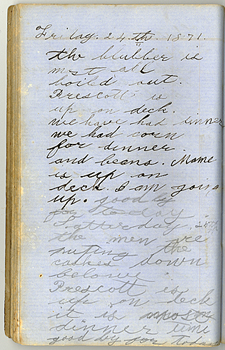 Friday. 24th. 1871.
the blubber is
most all
boild out.
Prescott is
up on deck.
we have had dinner
we had corn
for dinner.
and beans. Mama
is up on
deck. I am going
up. good by
for to day.
the men are
the
down
below.
Prescott is
up on deck
it is most
dinner time
good by for today